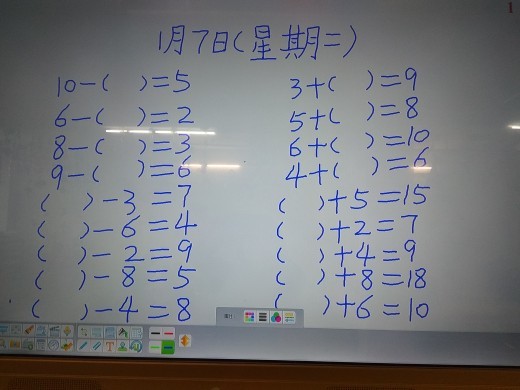 1月7日(星期二)
10-( )=5
6-( )=2
8-( )=3
9-( )=6
( )-3=7
( )-6=4
( )-2=9
( )-8=5
( )-4=8
3+( )=9
5+( )=8
6+( )=10
4+( )=6
( )+5=15
( )+2=7
( )+4=9
( )+8=18
( )+6=10